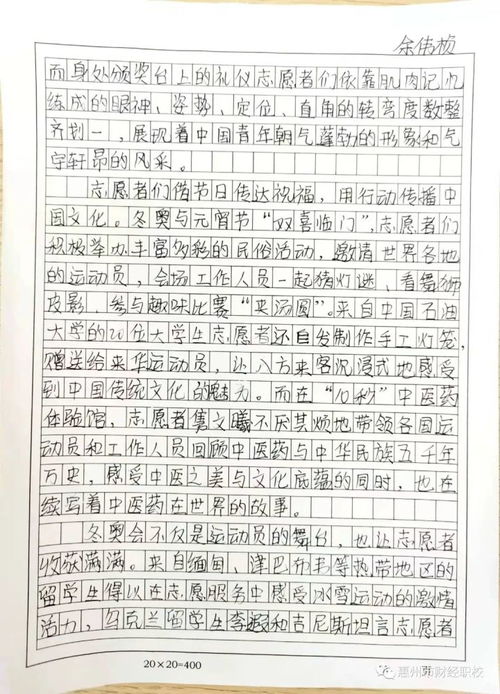 余伟桢
而身处颁奖台上的礼仪志愿者们依靠肌肉记忆
练成的眼神、姿势、定位、直角的转弯度数整
齐划一，展现着中国青年朝气蓬勃的形象和气
宇轩昂的风采。
志愿者们借节日传达祝福，用行动传播中
国文化。冬奥与元宵节“双喜临门”，志愿者们
积极举办丰富多彩的民俗活动，邀请世界各地
的运动员，会场工作人员一起猜灯谜、看舞狮
皮影，参与趣味比赛“夹汤圆”。来自中国石油
大学的20位大学生志愿者还自发制作手工灯笼，
赠送给来华运动员，让八方来客沉浸式地感受
到中国传统文化的魅力。而在“10秒”中医药
体验馆，志愿者隽文曦不厌其烦地带领各国运
动员和工作人员回顾中医药与中华民族五千年
历史，感受中医之美与文化底蕴的同时，也在
续写着中医药在世界的故事。
冬奥会不仅是运动员的舞台，也让志愿者
收获满满。来自缅甸、津巴布韦等热带地区的
留学生得以在志愿服务中感受冰雪运动的激情
活力，乌克兰留学生李和吉尼斯坦言志愿者
20×20=400
页
惠州市财经职校